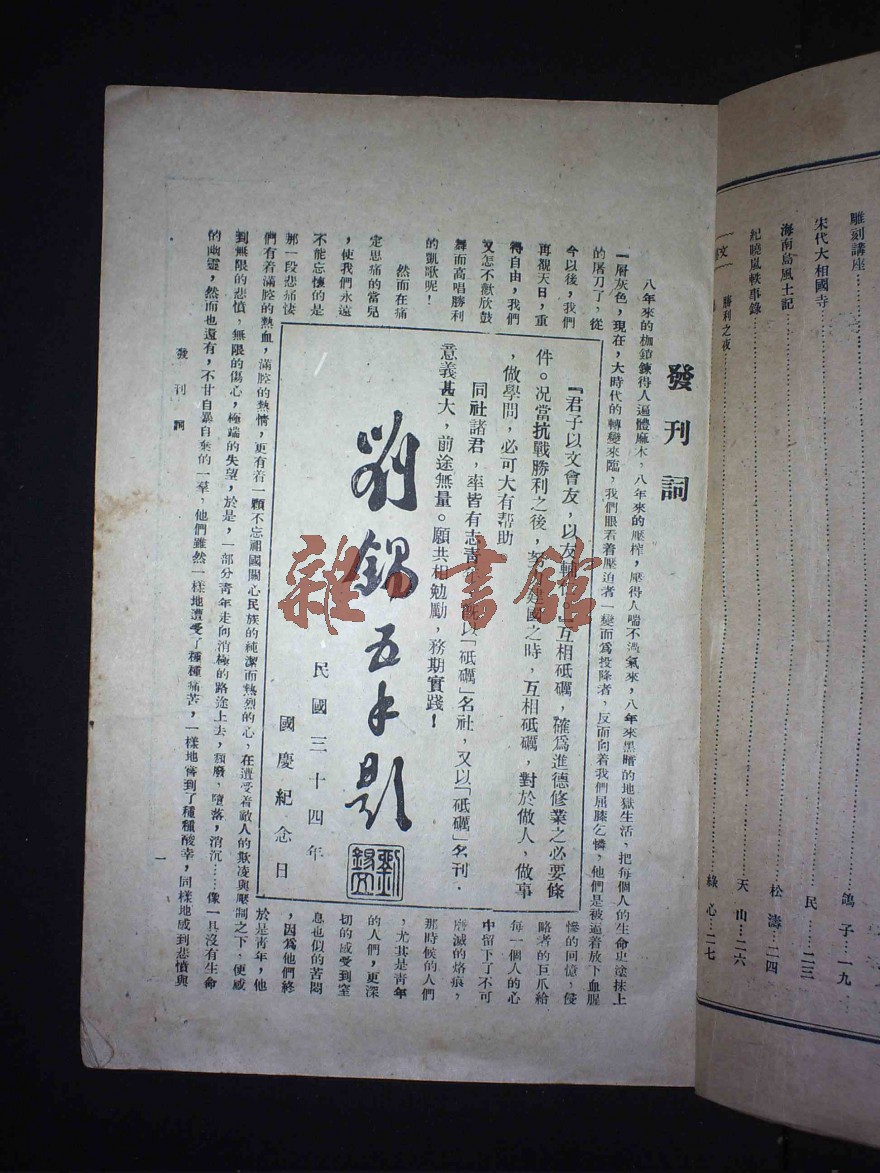 雕刻講座……鴿子…一九
宋代大相國寺……民…二三
海南島風土記……松濤…二四
紀曉嵐軼事錄……天山…二六
勝利之夜……綠心…二七
發刊詞
八年來的枷鎖鍊得人遍體麻木，八年來的壓榨，壓得人喘不過氣來，八年來黑暗的地獄生活，把每個人的生命史塗抹上
一層灰色，現在，大時代的轉變來臨，我們眼看着壓迫者一變而爲投降者，反而向着我們屈膝乞憐，他們是被逼着放下血腥
的屠刀了，從
今以後，我們
再覩天日，重
得自由，我們
又怎不歡欣鼓
舞而高唱勝利
的凱歌呢！
然而在痛
定思痛的當兒
，使我們永遠
不能忘懷的是
那一段悲痛悽
慘的回憶，侵
略者的巨爪給
每一個人的心
中留下了不可
磨滅的烙痕，
那時候的人們
，尤其是青年
的人們，更深
切的感受到窒
息也似的苦悶
，因爲他們終
於是青年，他
『君子以文會友，以友輔互相砥礪，確爲進德修業之必要條
件。况當抗戰勝利之後，努力建國之時，互相砥礪，對於做人，做事
，做學問，必可大有幫助。
同社諸君，率皆有志靑以「砥礪」名社，又以「砥礪」名刊．
意義甚大，前途無量。願共相勉勵，務期實踐！
劉錫五手題
民國三十四年
國慶紀念日
劉錫五
們有着滿腔的熱血，滿腔的熱情，更有着一顆不忘祖國關心民族的純潔而熱烈的心，在遭受着敵人的欺凌與壓制之下，便感
到無限的悲憤，無限的傷心，極端的失望，於是，一部分青年走向消極的路途上去，頹廢，墮落，消沉……像一具沒有生命
的幽靈，然而也還有，不甘自暴自棄的一羣，他們雖然一樣地遭受了種種痛苦，一樣地嘗到了種種酸辛，同樣地感到悲憤與
發刊詞
一
雜書館